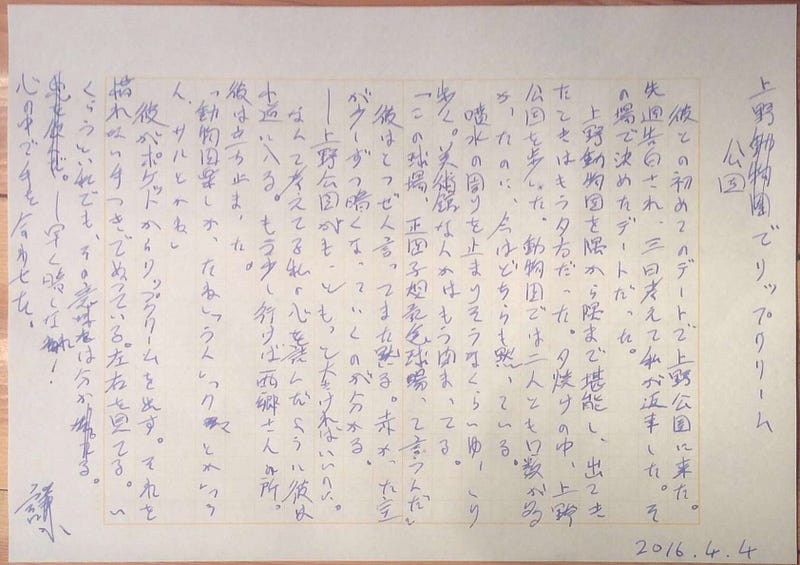 上野動物園でリップクリーム
公園
彼との初めてのデートで上野公園に来た。
先週告白され、三日考えて私が返事した。そ
の場で決めたデートだった。
上野動物園を隅から隅まで堪能し、出てき
たときはもう夕方だった。夕焼けの中、上野
公園を歩いた。動物園では二人とも口数が多
かったのに、今はどちらも黙っている。
噴水の周りを止まりそうなくらいゆっくり
歩く。美術館なんかはもう閉まってる。
「この球場、正岡子規記念球場、って言うんだ」
彼はとつぜん言ってまた黙る。赤かった空
が少しずつ暗くなっていくのが分かる。
―上野公園がもっともっと大きければいいのに。
なんて考えてる私の心を読んだように彼は
小道に入る。もう少し行けば西郷さんの所。
彼は立ち止まった。
「動物園楽しかったね」「うん」「クマとか」「う
ん、サルとかね」
彼がポケットからリップクリームを出す。それを
慣れない手つきでぬっている。左右を見てる。い
くらうとい私でも、その意味は分かる。
―早く暗しなれ!
心の中で手を合わせた。
2016.4.4